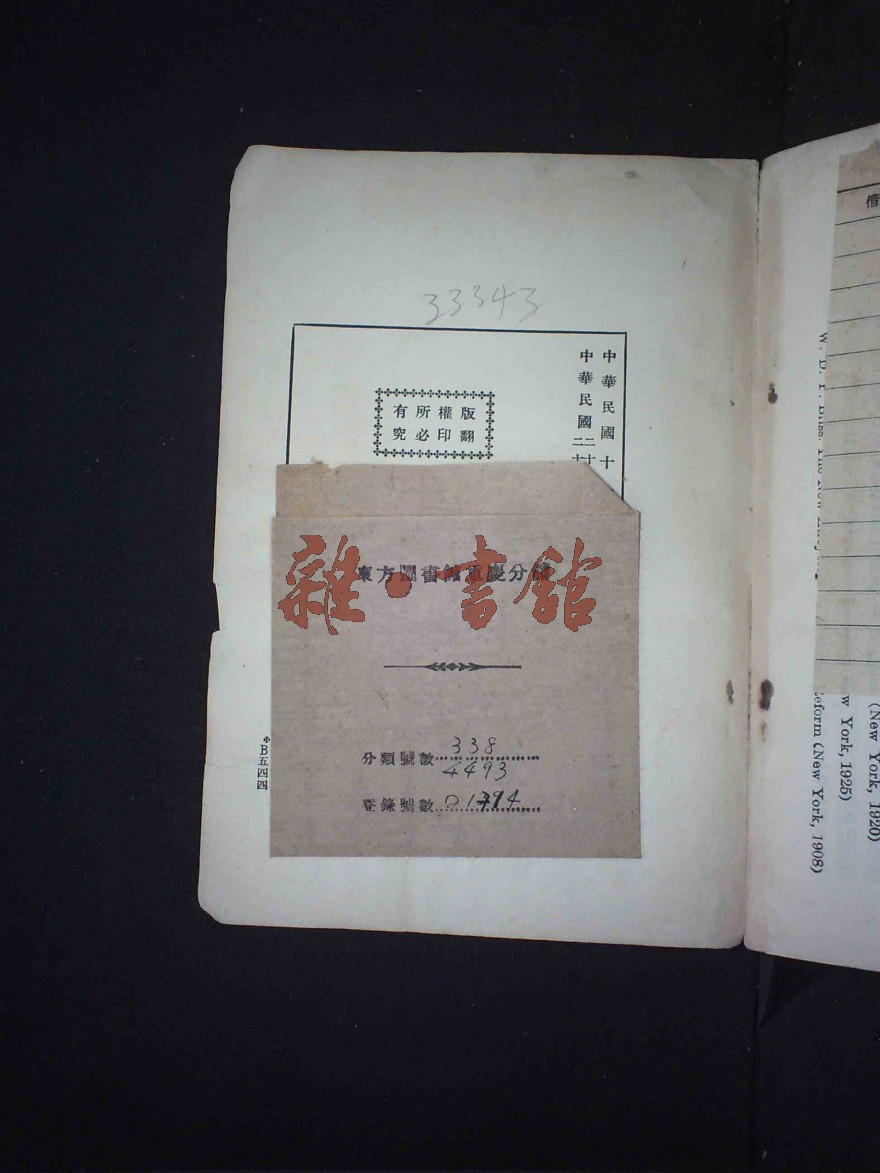 33343
中華民國十
中華民國二十
版權所有
翻印必究
東方圖書館重慶分館
雜·書館
分類號數 338
4493
登錄號數 01394
B五四四
借
(New York, 1920)
w York, 1925)
eform (New York, 1908)